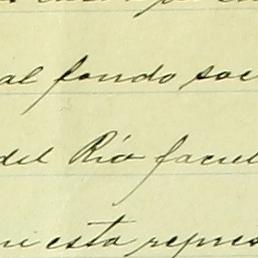 al fondo soc
del Río facul
esta repres